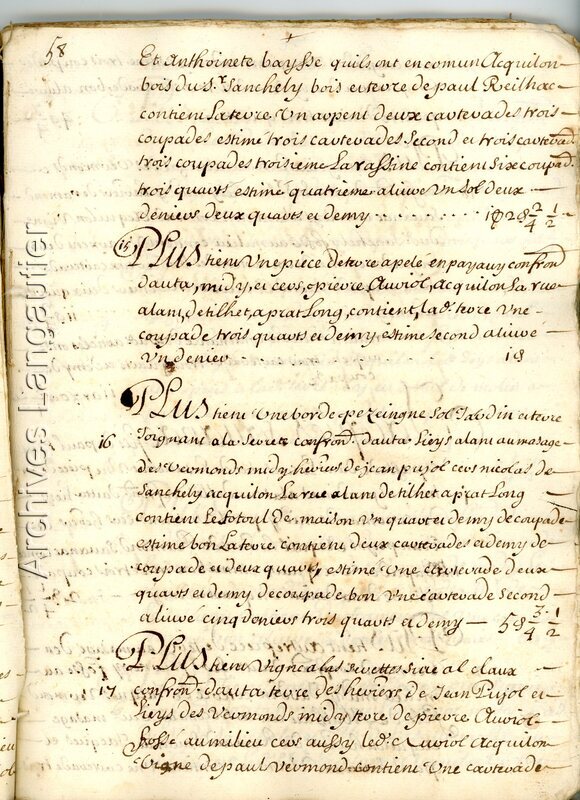 58
Et Anthoinete baysse quils ont en comun Acquilon
bois du sr. sanchely bois et terre de paul Reilhac
contient La terre Un arpent deux carterades trois
coupades estimé trois carterades Second et trois carterad.
trois coupades troisieme La rassine contient six coupad.
trois quarts estimé quatrieme alivre Un sol deux
deniers deux quarts et demy . . . . . . . . . . 1s 2d 2/4 1/2
15 PLUS tient Une piece de terre apelé en payavy confron
d'auta, midy, et cers, pierre Auriol, acquilon La rue
alant, de tilhet, a prat Long, contient, lad. terre Une
coupade trois quarts et demy estimé second alivre
Un denier 1d
PLUS tient Une borde pezeingne sol Jardin et terre
16 Joignant a la Serrete confron. d'auta Lieys alant au masage
des Vermonds midy heritiers de jean pujol cers nicolas de
Sanchely acquilon La rue alant de tilhet a prat Long
contient Le fotoul de maison Un quart et demy de coupade
estimé bon La terre contient deux carterades et demy de
coupade et deux quarts estimé Une carterade deux
quarts et demy de coupade bon Une carterade Second
alivré cinq deniers trois quarts et demy 5d 3/4 1/2
PLUS tient Vigne a las serrettes sive al claux
17 confron. d'auta terre des heritiers de Jean Pujol et
Lieys des Vermonds midy terre de pierre Auriol
fossé au milieu cers aussy led. Auriol Acquilon
Vigne de paul Vermond contient Une carterade
Archives Langautier